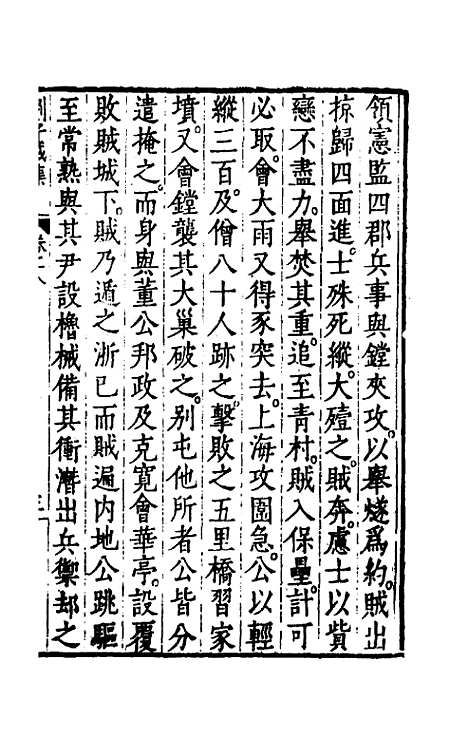 領憲監四郡兵事與鏜夾攻以舉燧爲約賊出
掠歸四面進士殊死縱大殪之賊奔慮士以貲
戀不盡力舉焚其重追至青村賊入保壘計可
必取會大雨又得豕突去上海攻圍急公以輕
縱三百及僧八十人跡之擊敗之五里橋習家
墳又會鏜襲其大巢破之別屯他所者公皆分
遣掩之而身與董公邦政及克寬會華亭設覆
敗賊城下賊乃遁之浙已而賊遍內地公跳驅
至常熟與其尹設櫓械備其衝潛出兵禦却之